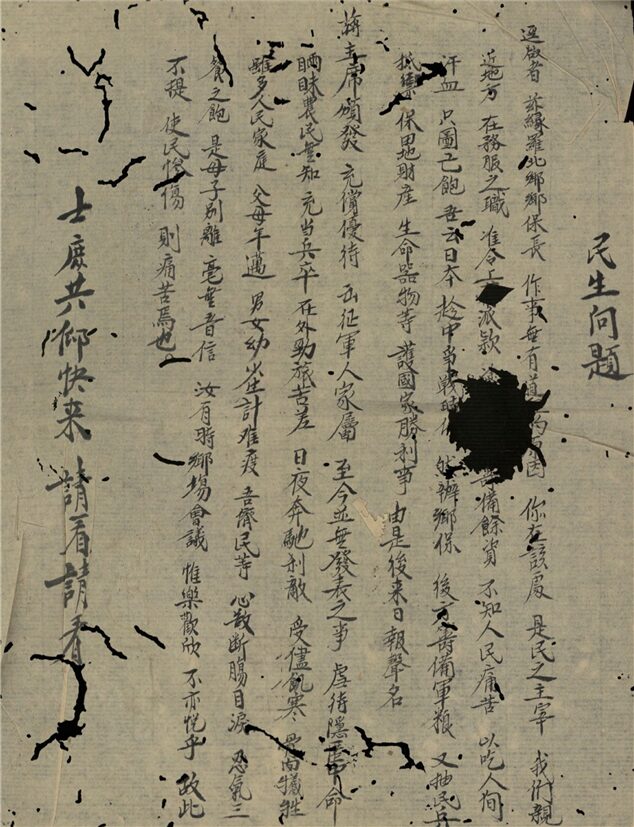 民生问题
逕啟者 茲緣羅北鄉鄉保長 作事無有道 的原因 你在該處 是民之主宰 我们親
近地方 在務服之職 准令上 派款 籌備餘資 不知人民痛苦 以吃人间
汗血 只圖己飽 吾云日本 趁中争戰時 然辦鄉保 後方籌備軍粮 又抽民兵
抵禦 保田地财產 生命器物等 護國家勝利事 由是後来日報聲名
蔣主席頒發 充饷優待 出征軍人家屬 至今並無發表之事 虐待隱 命
瞞昧農民無知 充当兵卒 在外勁旅苦差 日夜奔馳利敵 受儘飢寒 尚犠牲
雖多人民家庭 父母年邁 男女幼 計难度 吾儕民等 心散断腸目淚 忍氣三
餐之飽 是母子别離 毫無音信 汝有時鄉場會議 惟樂歡欣 不亦悦乎 故此
不提 使民惨傷 則痛苦焉也
士庶共仰快来 請看請看